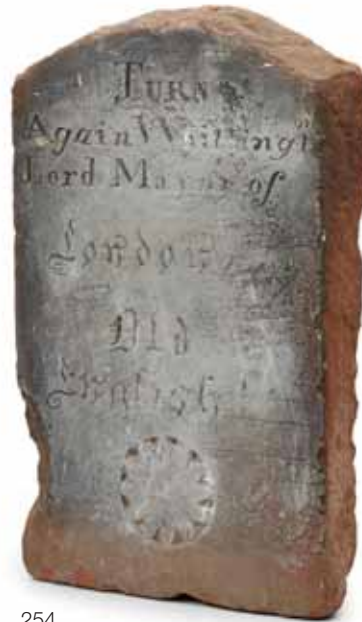 TURN
Again Whittingt
Lord Mayor of
London
Old
English
254